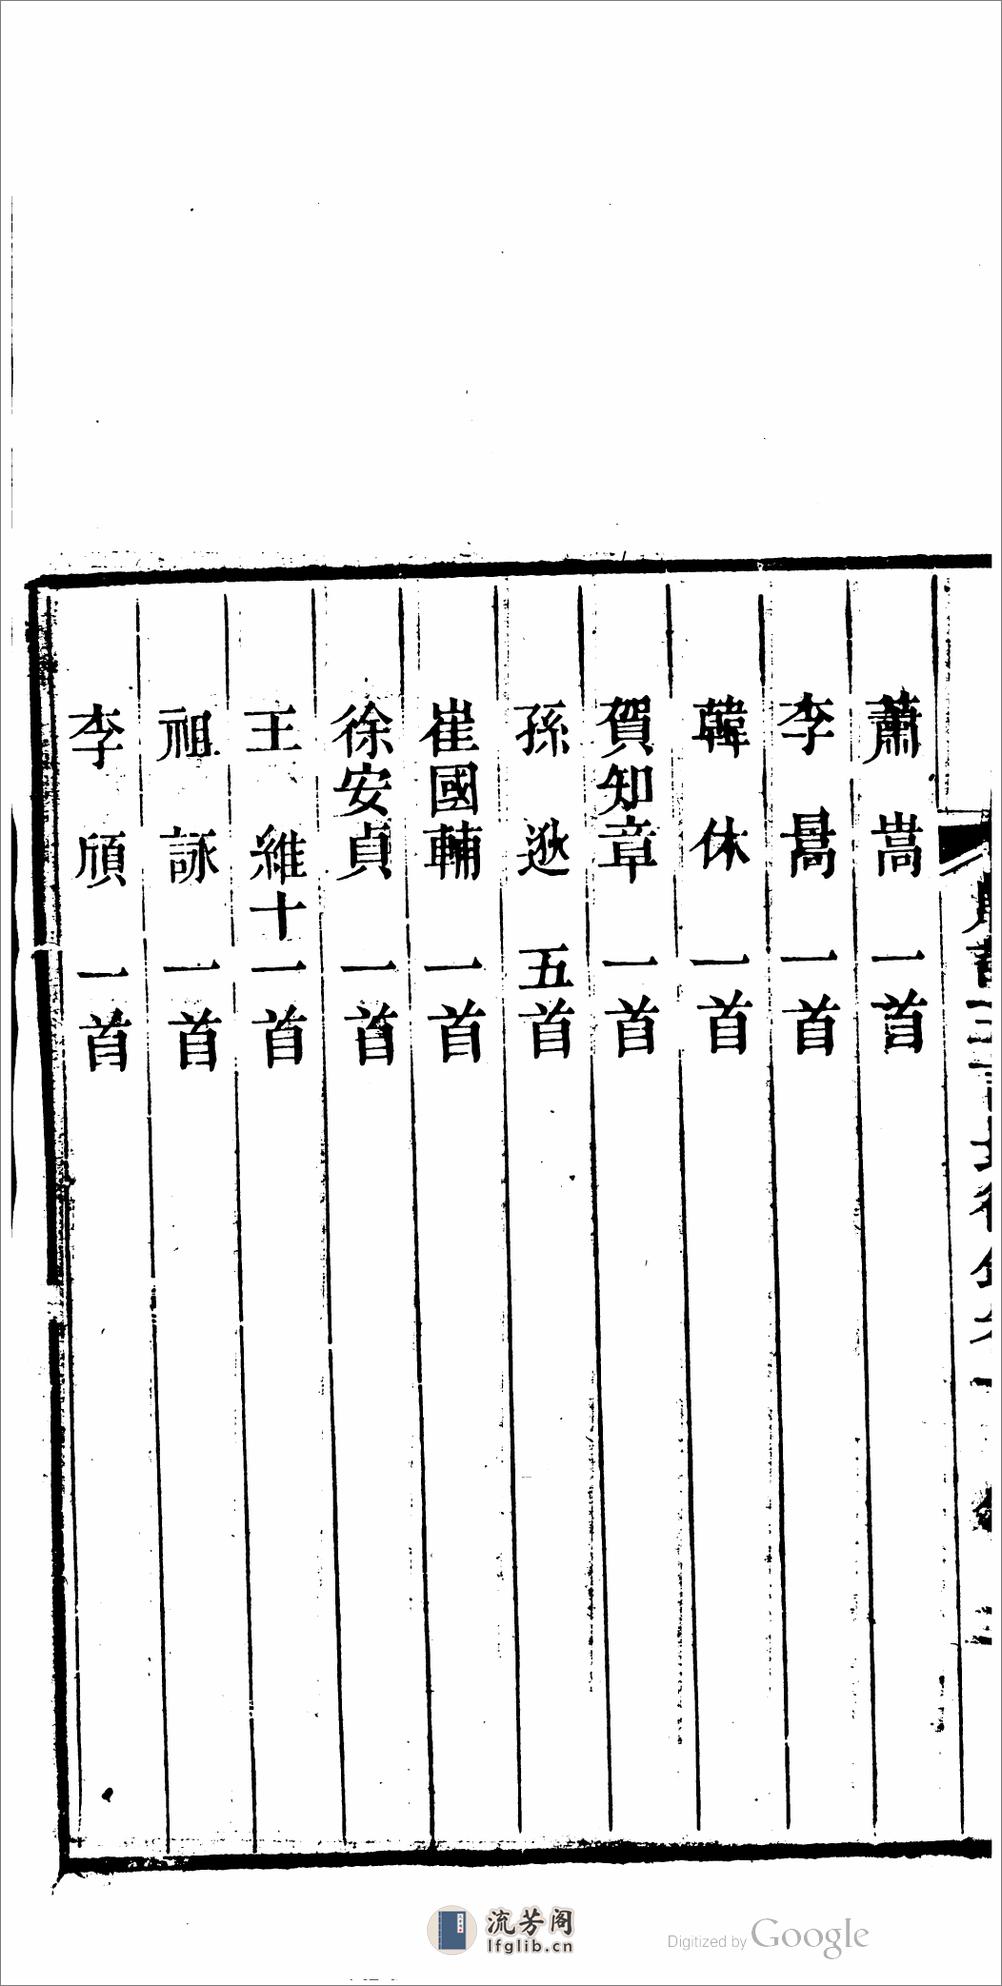 蕭嵩一首
李暠一首
韓休一首
賀知章一首
孫逖五首
崔國輔一首
徐安貞一首
王維十一首
祖詠一首
李頎一首
流芳阁
lfglib.cn
Digitized by Google